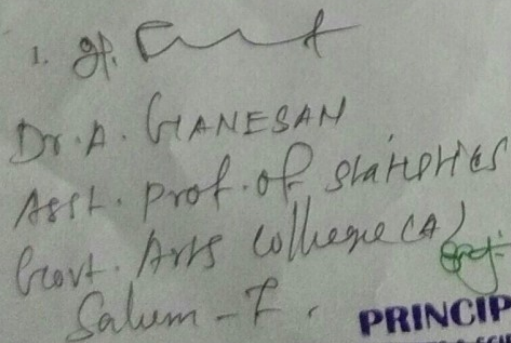 1.
Dr. A. GANESAN
Asst. Prof. of Statistics
Govt. Arts College (A)
Salem - 7.
PRINCIP